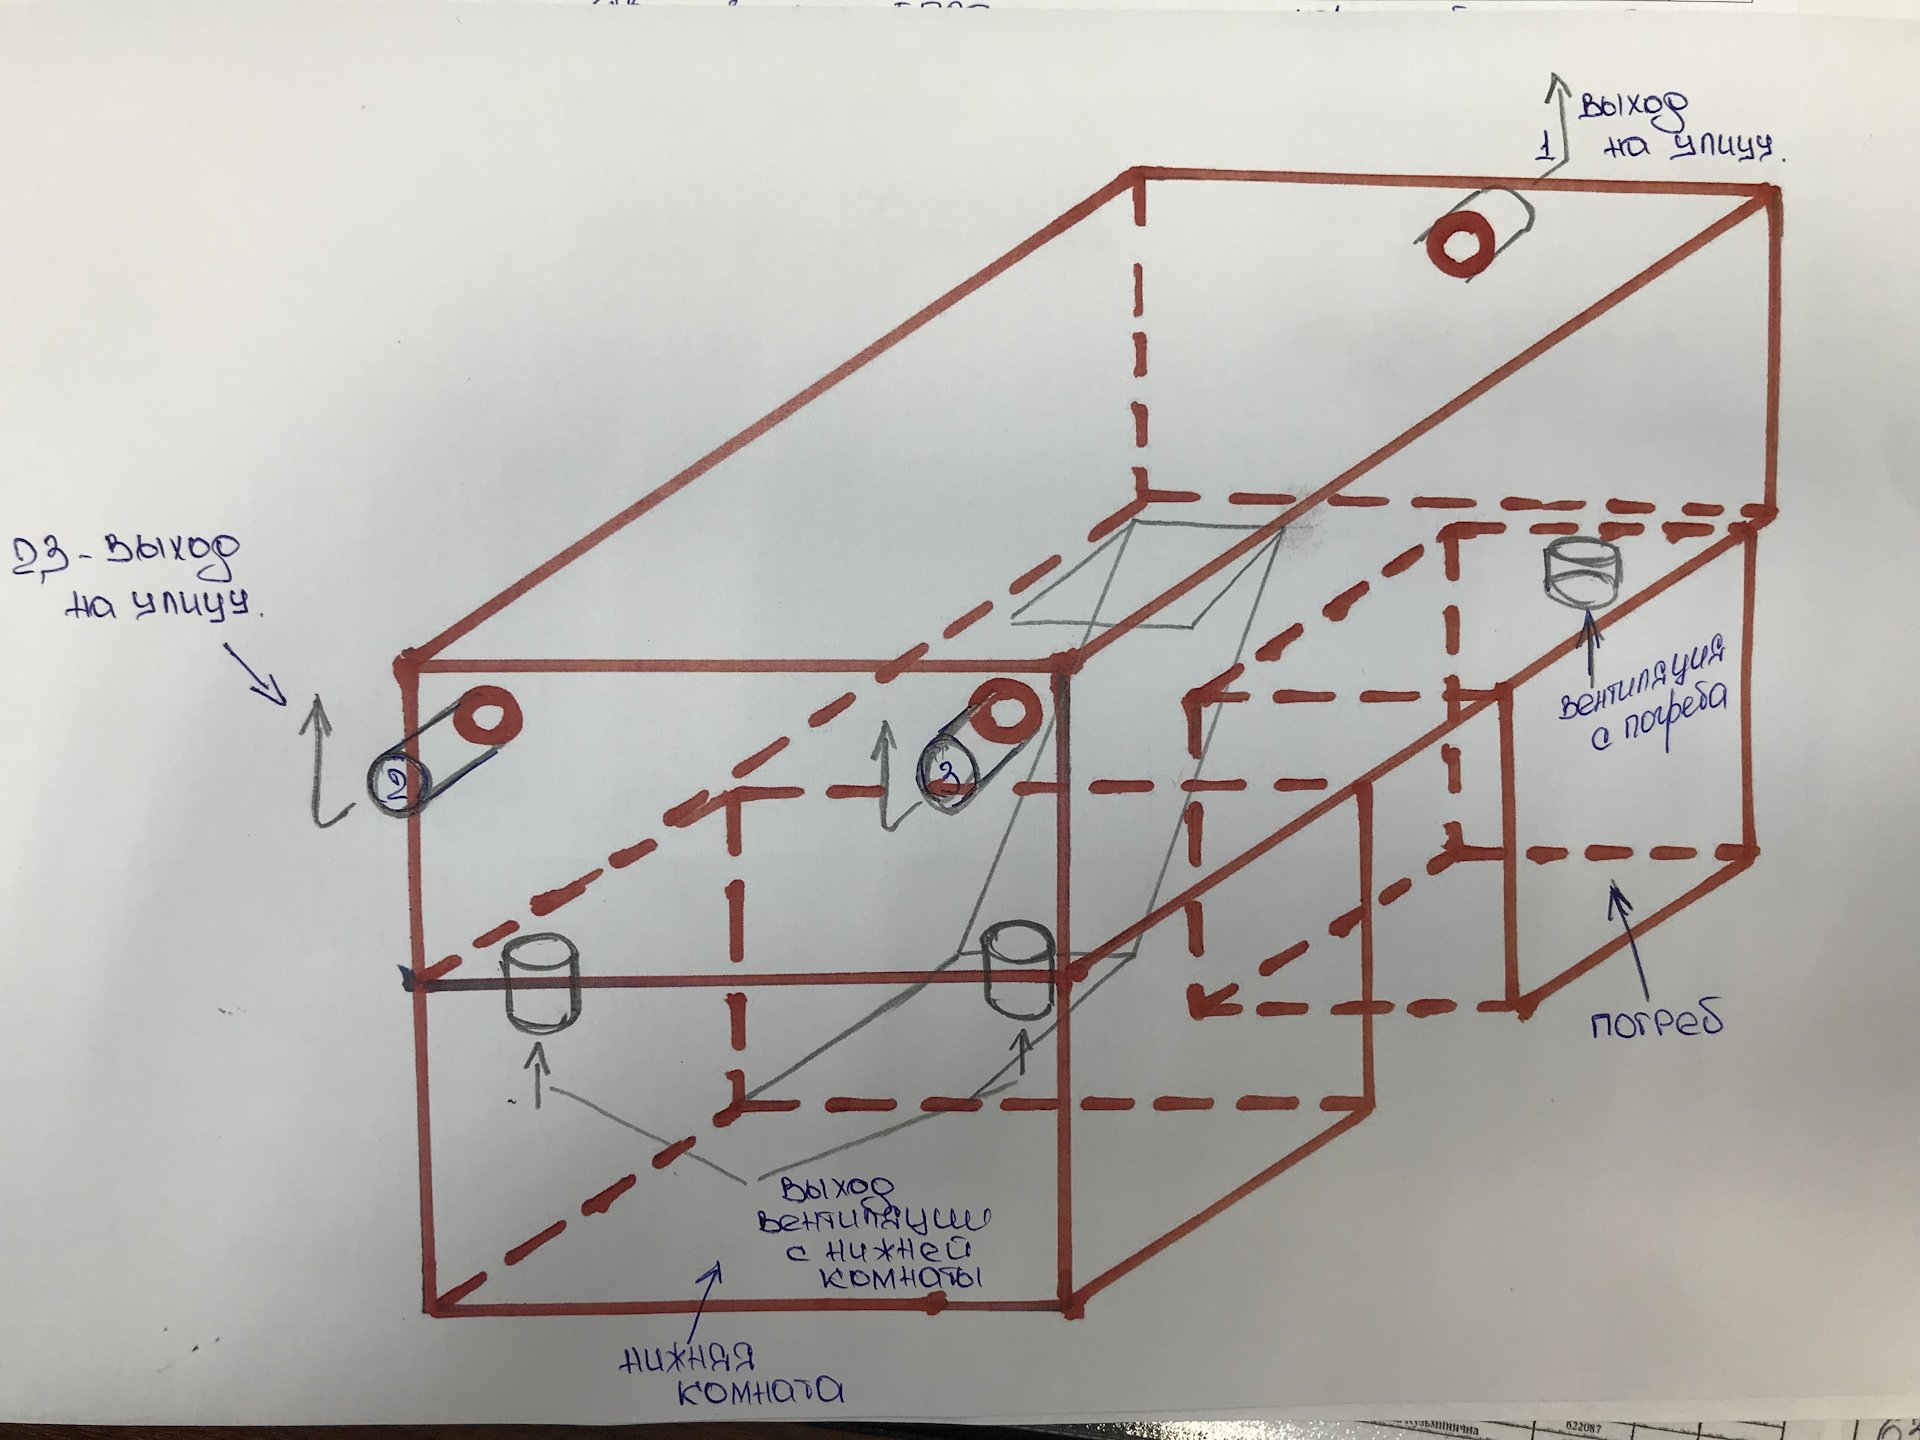 выход
1 на улицу.
2,3 - выход
на улицу.
2
3
вентиляция
с погреба
погреб
выход
вентиляции
с нижней
комнаты
нижняя
комната
Кузьминична
622087